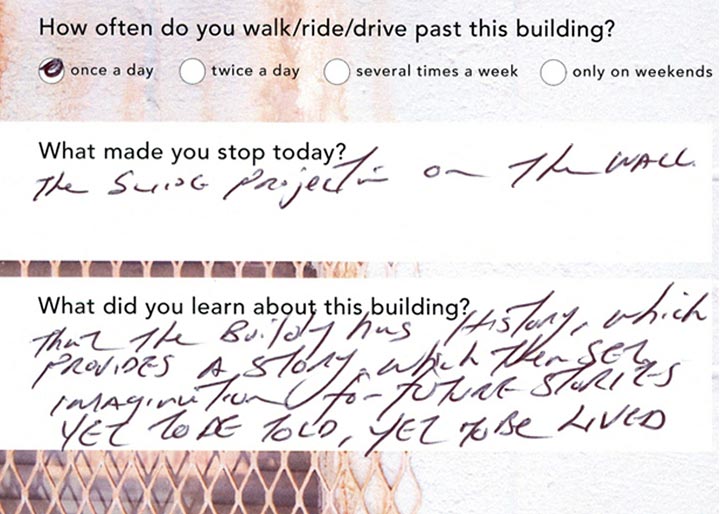 How often do you walk/ride/drive past this building?
once a day twice a day several times a week only on weekends
What made you stop today?
The SLIDE Projection on The WALL.
What did you learn about this building?
That The Building has History, which
PROVIDES A STORY, which then SET
IMAGINATION for FUTURE STORIES
YET TO BE TOLD, YET TO BE LIVED